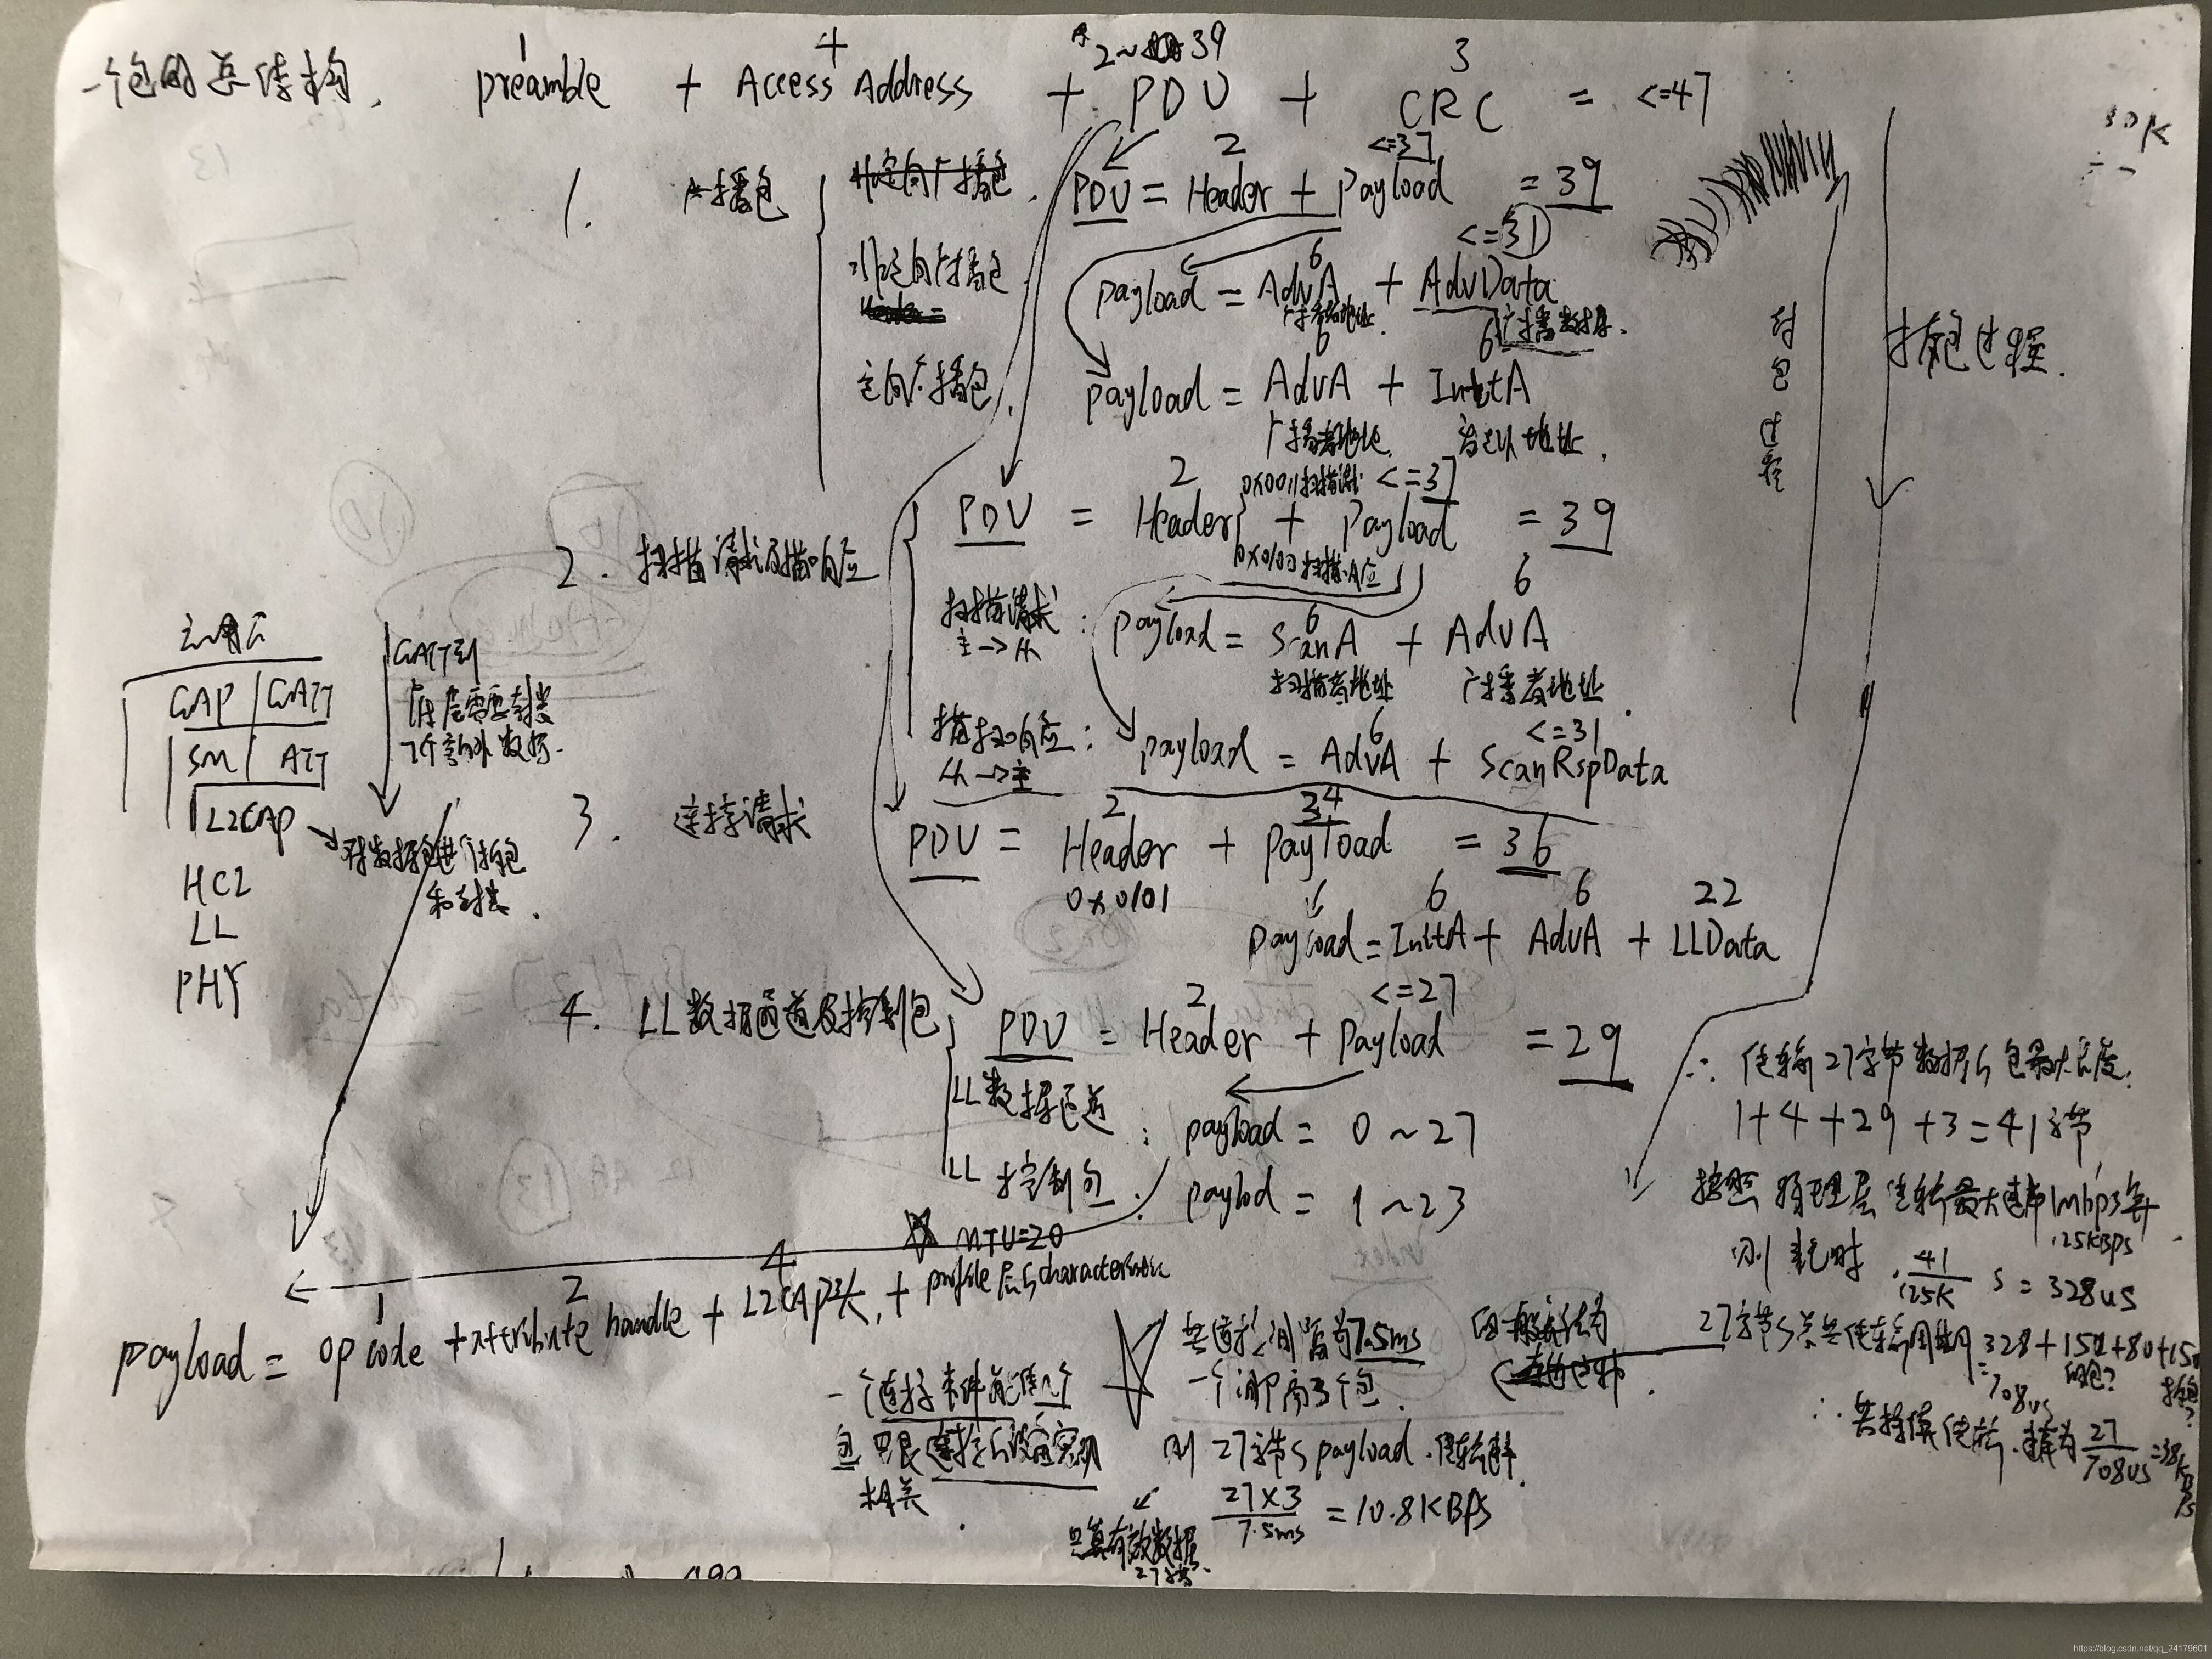 一个包的总结构. preamble + Access Address + PDU + CRC = <=47
1 4 2~39 3
1. 广播包
PDU = Header + Payload = 39
2 <=37
非定向广播包
payload = AdvA + AdvData
6 <=31
广播者地址 广播数据
定向广播包
payload = AdvA + InitA
6 6
广播者地址
2. 扫描请求及扫描响应
PDU = Header + Payload = 39
2 <=37
0x0011扫描请求
0x0100扫描响应
扫描请求 主->从 : payload = ScanA + AdvA
6 6
扫描者地址 广播者地址
扫描响应 从->主 : payload = AdvA + ScanRspData
6 <=31
3. 连接请求
PDU = Header + Payload = 36
2 34
0x0101
Payload = InitA + AdvA + LLData
6 6 22
4. LL数据通道及控制包
PDU = Header + Payload = 29
2 <=27
LL数据通道 : payload = 0 ~ 27
LL 控制包 : paylod = 1 ~ 23
MTU=20
payload = opcode + attribute handle + L2CAP头 + profile层的characteristic
1 2 4
应用层
GAP | GATT
SM | ATT
L2CAP
对数据包进行拆包
和封装.
HCI
LL
PHY
GATT到
底层需要封装
7个额外数据.
封包过程
拆包过程.
∴ 传输27字节数据的包最大长度:
1+4+29+3=41字节
按照物理层传输最大速率1mbps算
125KBPS
则耗时 41/125K s = 328us
27字节的总共传输周期为328+150+80+150
=708us
∴ 速率为 27/708us =38KBPS
一个连接事件能传几个
包只跟连接的设备实现
相关.
若连接间隔为7.5ms
一个间隔3个包.
则27字节的payload传输速率
27×3/7.5ms = 10.8KBPS
只算有效数据
27字节.
https://blog.csdn.net/qq_24179601